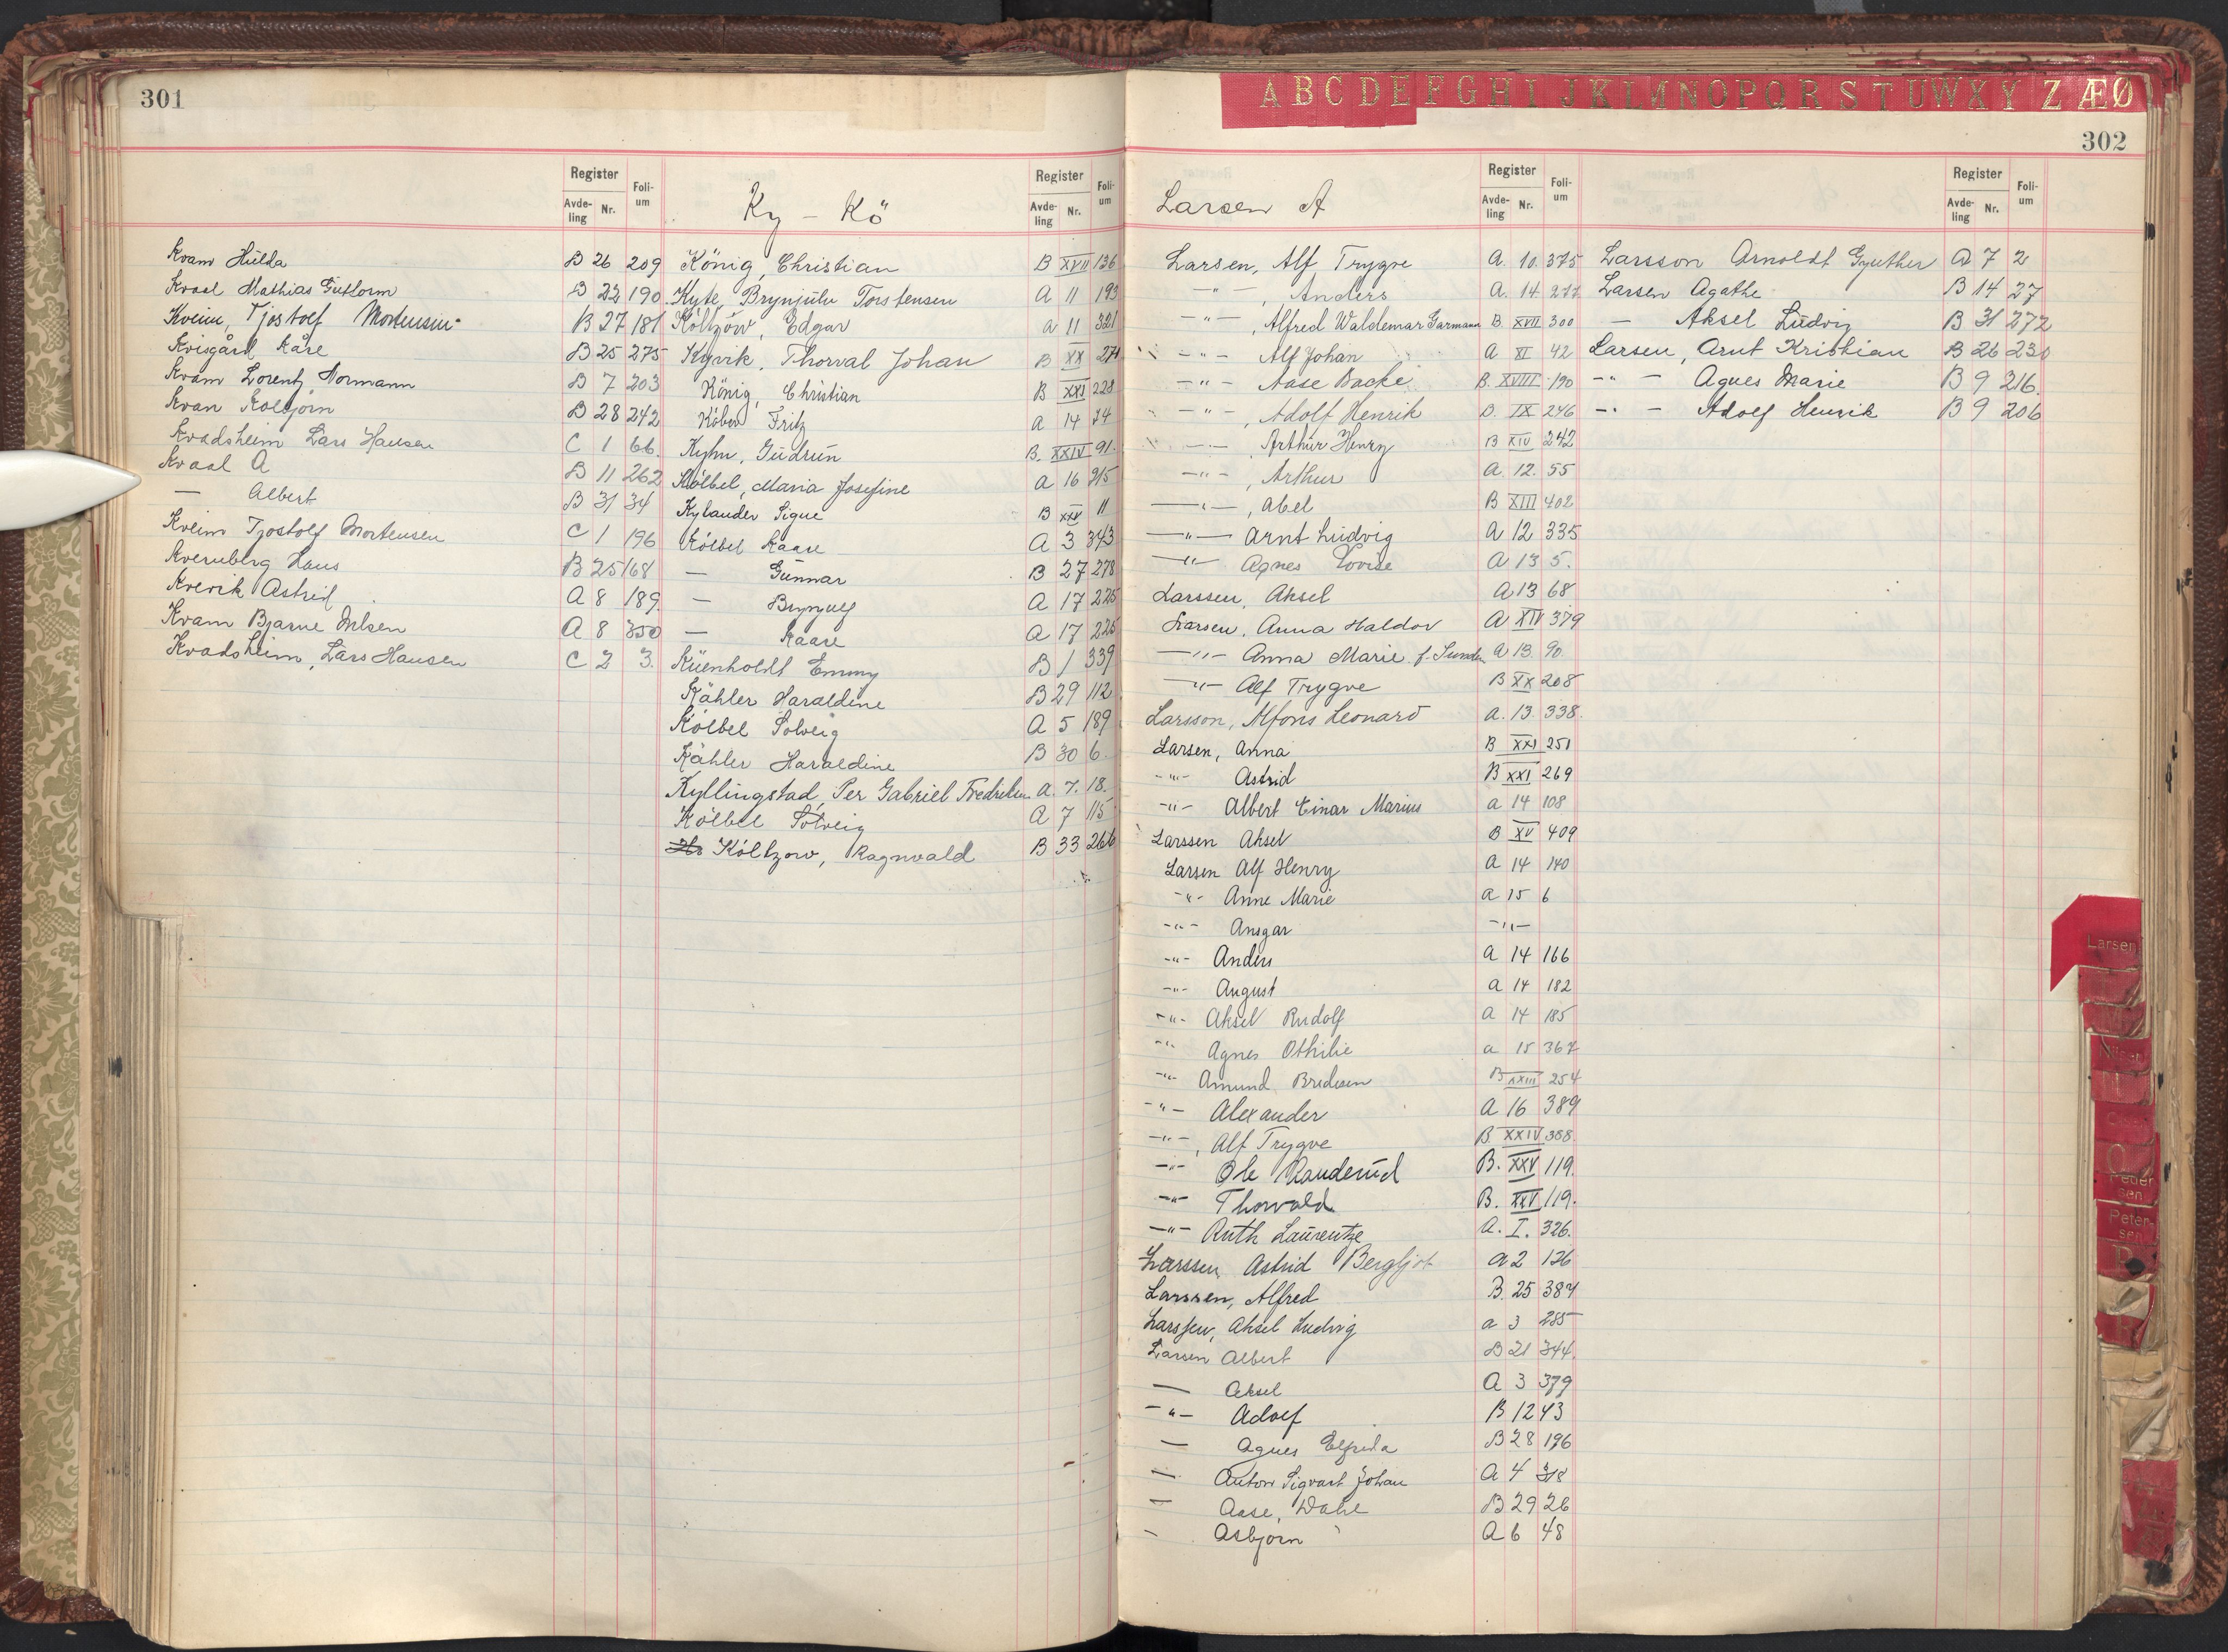 301
Register
Avde-ling Nr. Foli-um
Kvam Hulda B 26 209
Kvaal Mathias Guttorm B 22 190
Kveim, Tjostolf Mortensen B 27 181
Kvisgård Kåre B 25 275
Kvam Lorentz Normann B 7 203
Kvan Kolbjörn B 28 242
Kvadsheim Lars Hansen C 1 66.
Kvaal A B 11 262
— Albert B 31 34
Kveim Tjostolf Mortensen C 1 196
Kvernberg Hans B 25 168
Kvervik Astrid A 8 189
Kvam Bjarne Nilsen A 8 350
Kvadsheim, Lars Hansen C 2 3.
Ky - Kö
Register
Avde-ling Nr. Foli-um
König, Christian B XVII 136
Kyte, Brynjulv Torstensen A 11 193
Költzow, Edgar a 11 321
Kyvik, Thorval Johan B XX 271
König, Christian B XXI 228
Köber Fritz a 14 74
Kyhn, Gudrun B. XXIV 91.
Kölbel, Maria Josefine a 16 215
Kylander Signe B XXV 11
Kölbel Kaare A 3 343
— Gunnar B 27 278
— Brynjulf A 17 225
— Kaare a 17 225
Küenholdt Emmy B 1 339
Kähler Haraldine B 29 112
Kölbel Solveig A 5 189
Kähler Haraldine B 30 6
Kyllingstad, Per Gabriel Fredriksen A. 7. 18.
Kölbel Solveig A 7 115
Költzow, Ragnvald B 33 266
A B C D E F G H I J K L M N O P Q R S T U W X Y Z Æ Ø
302
Larsen A
Register
Avde-ling Nr. Foli-um
Larsen, Alf Trygve A. 10. 375
—"—, Anders A. 14 277
—"—, Alfred Waldemar Garmann B. XVII 300
—"— Alf Johan A XI 42
—"— Aase Backe B. XVIII 190
—"—, Adolf Henrik B. IX 246
—"—, Arthur Henry B XIV 242
—"—, Arthur A. 12. 55
—"—, Abel B XIII 402
—"— Arnt Ludvig A 12 335
—"— Agnes Lovise A 13 5.
Larssen, Aksel A 13 68
Larsen, Anna Haldor A XIV 379
—"— Anna Marie f. Sunde A 13. 90.
—"— Alf Trygve B XX 208
Larsson, Alfons Leonard a. 13. 338.
Larsen, Anna B XXI 251
—"— Astrid B XXI 269
—"— Albert Einar Marius a 14 108
Larssen Aksel B XV 409
Larsen Alf Henry a 14 140
—"— Anne Marie a 15 6
—"— Ansgar —"—
—"— Anders a 14 166
—"— August a 14 182
—"— Aksel Rudolf a 14 185
—"— Agnes Othilie a 15 367
—"— Amund Bredesen B XXIII 254
—"— Alexander A 16 389
—"—, Alf Trygve B. XXIV 388.
—"— Ole Randerud B. XXV 119.
—"— Thorvald B. XXV 119.
—"— Ruth Laurentze A. I. 326.
Larssen Astrid Bergljot a 2 126
Larssen, Alfred B. 25 384
Larssen, Aksel Ludvig a 3 285
Larsen Albert B 21 344.
— Aksel A 3 379
—"— Adolf B 12 43
— Agnes Elfrida B 28 196
— Anton Sigvart Johan A 4 318
— Aase, Dahl B 29 26
— Asbjørn A 6 48
Register
Avde-ling Nr. Foli-um
Larsson Arnoldt Gynther A 7 2
Larsen Agathe B 14 27
— Aksel Ludvig B 31 272
Larsen, Arnt Kristian B 26 230
—"— Agnes Marie B 9 216.
—"— Adolf Henrik B 9 206
Larsen
Peder
sen
Peter-
sen